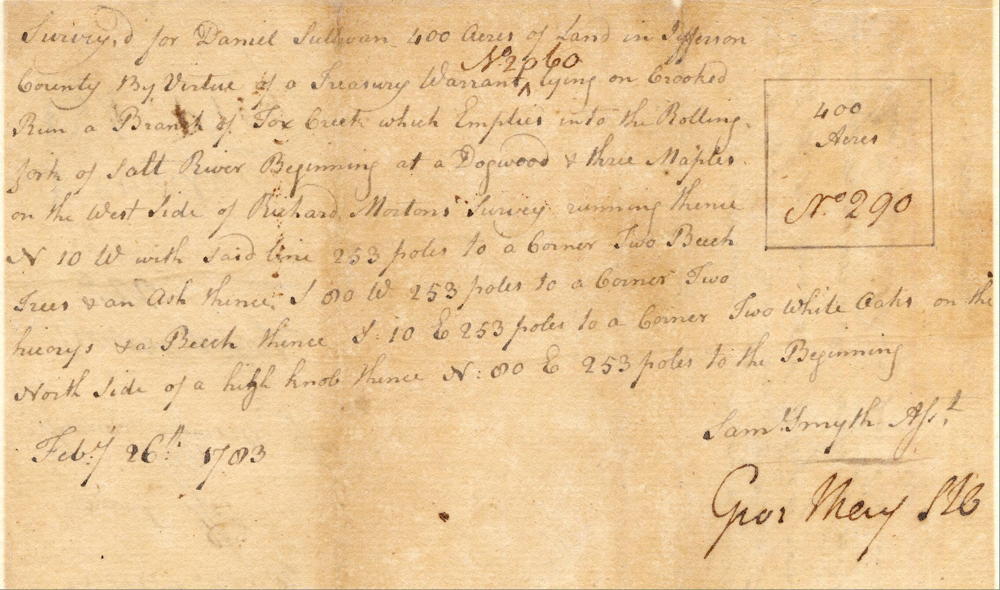 Survey,d for Daniel Sullivan 400 Acres of Land in Jefferson
County By Virtue of a Treasury Warrant ^ No 2060 lying on Crooked
Run a Branch of Fox Creek which Empties into the Rolling
fork of Salt River Beginning at a Dogwood & three Maples
on the West Side of Richard Mortons Survey running thence
N 10 W with said line 253 poles to a Corner Two Beech
Trees & an Ash thence S 80 W 253 poles to a Corner Two
hicorys & a Beech thence S: 10 E 253 poles to a Corner Two White Oaks on the
North Side of a high knob thence N: 80 E 253 poles to the Beginning
400
Acres
No 290
Sam.l Smyth Asst
Feb.y 26th 1783
Geor May SJC